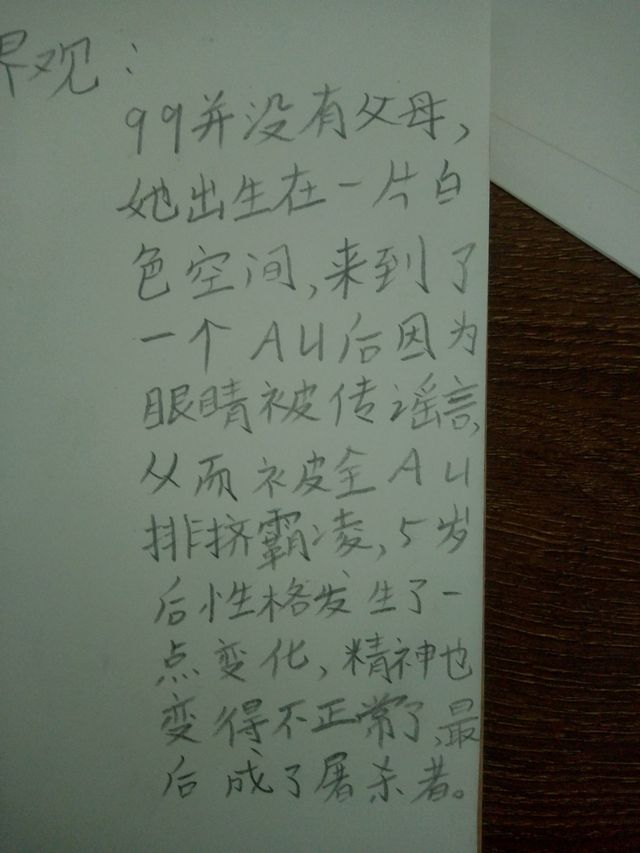 界观：
99并没有父母，
她出生在一片白
色空间，来到了
一个AU后因为
眼睛被传谣言，
从而被全AU
排挤霸凌，5岁
后性格发生了一
点变化，精神也
变得不正常了，最
后成了屠杀者。